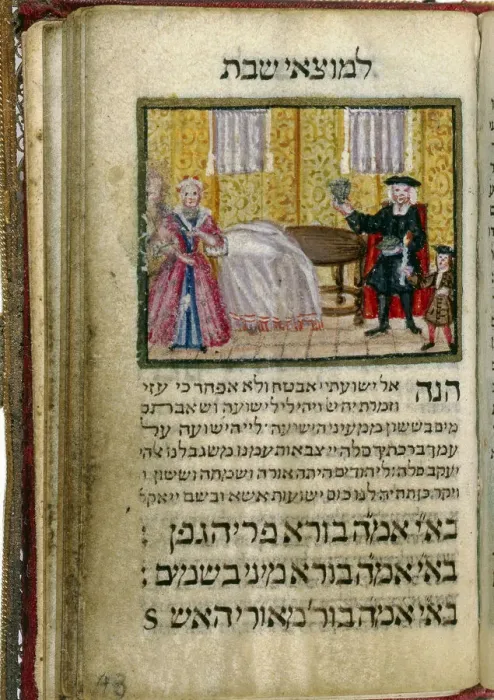 למוצאי שבת
הנה אל ישועתי אבטח ולא אפחד כי עזי
וזמרת יה יי ויהי לי לישועה ושאבתם
מים בששון ממעיני הישועה ליי הישועה על
עמך ברכתך סלה יי צבאות עמנו משגב לנו אלהי
יעקב סלה ליהודים היתה אורה ושמחה וששון ו
ויקר כן תהיה לנו כוס ישועות אשא ובשם יי אקר
בא״י אמ״ה בורא פרי הגפן :
בא״י אמ״ה בורא מיני בשמים :
בא״י אמ״ה בור׳ מאורי האש